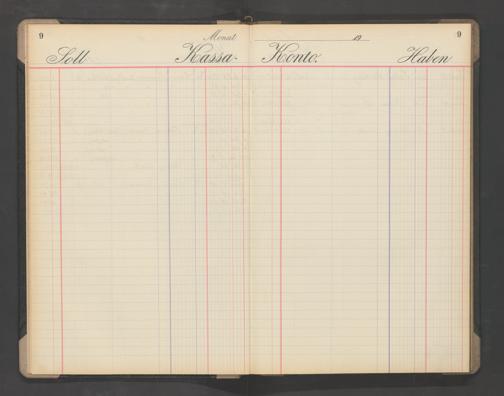 9 Monat 19 9
Soll Kassa-Konto. Haben